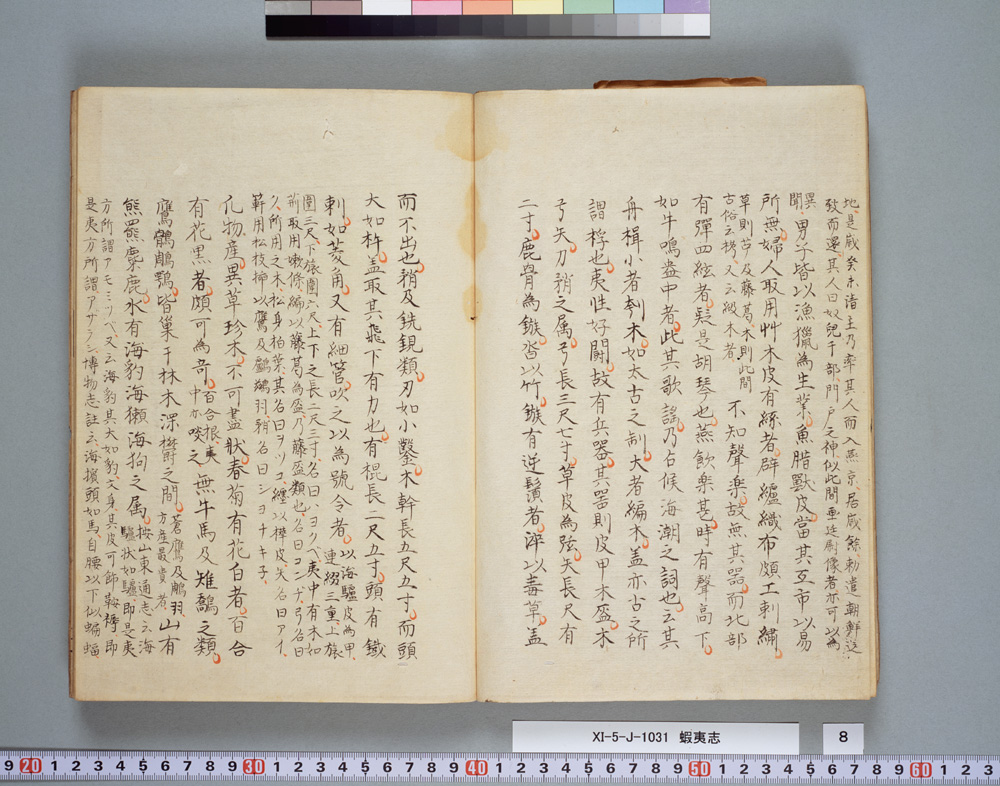 地、是歳癸未清主乃率其人而入燕京、居歳餘、勅遣朝鮮送
致而還、其人曰奴兒干部門戸之神似此間垂迹尉像者亦可以為
異
聞 男子皆以漁獵為生業、魚腊獸皮當其互市以易
所無、婦人取用艸木皮有縧者、辟纑織布頗工刺繍、
草則芋及藤葛、木則此間
古俗云 又云級木者 不知聲楽、故無其器、而北部
有彈四絃者、疑是胡琴也、燕飲楽甚時有聲高下、
如牛鳴盎中者、此其歌謠、乃占候海潮之詞也云其
舟楫小者刳木、如太古之制、大者編木、盖亦古之所
謂桴也、夷性好闘、故有兵器、其器則皮甲木盔、木
弓矢、刀矟之属、弓長三尺七寸、草皮為弦、矢長尺有
二寸、鹿骨為鏃、沓以竹、鏃有逆鬚者、淬以毒草、盖
而不出也、矟及銃鋧類、刃如小鑿、木幹長五尺五寸、而頭
大如杵、盖取其飛下有力也、有棍長二尺五寸、頭有鐵
刺、如菱角、又有細管、吹之以為號令者、以海驢皮為甲、
連綴三重、上旅
圍三尺、下旅圍六尺、上下之長二尺三寸、名曰ハヨクベ、夷中有木如
荊、取用嫩條、編以藤葛為盔、乃藤盔類也、名曰コンヂ、弓名曰
ク、所用之木、松身柏葉、其名曰ヲツコ、纏以樺皮、矢名曰アイ、
簳用松枝、翎以鷹及鸕鷀羽、矟名曰シヨナキ子、
凢物産、異草珍木、不可盡状、春菊有花白者、百合
有花黒者、頗可為奇、百合根夷
中亦啖之、無牛馬及雉鷸之類、
鷹鶻鵰鶚、皆巣于林木深欝之間、蒼鷹及鵰羽、
方産最貴者、山有
熊羆麋鹿、水有海豹海獺海狗之属、按山東通志云海
驢状如驢、即是夷
方所謂アモミツベ、又云海豹其大如豹、文身、其皮可飾鞍褥、即
是夷方所謂アザラシ、博物志註云、海獱頭如馬、自腰以下似蝙蝠、
XI-5-J-1031 蝦夷志
8
9 20 1 2 3 4 5 6 7 8 9 30 1 2 3 4 5 6 7 8 9 40 1 2 3 4 5 6 7 8 9 50 1 2 3 4 5 6 7 8 9 60 1 2 3